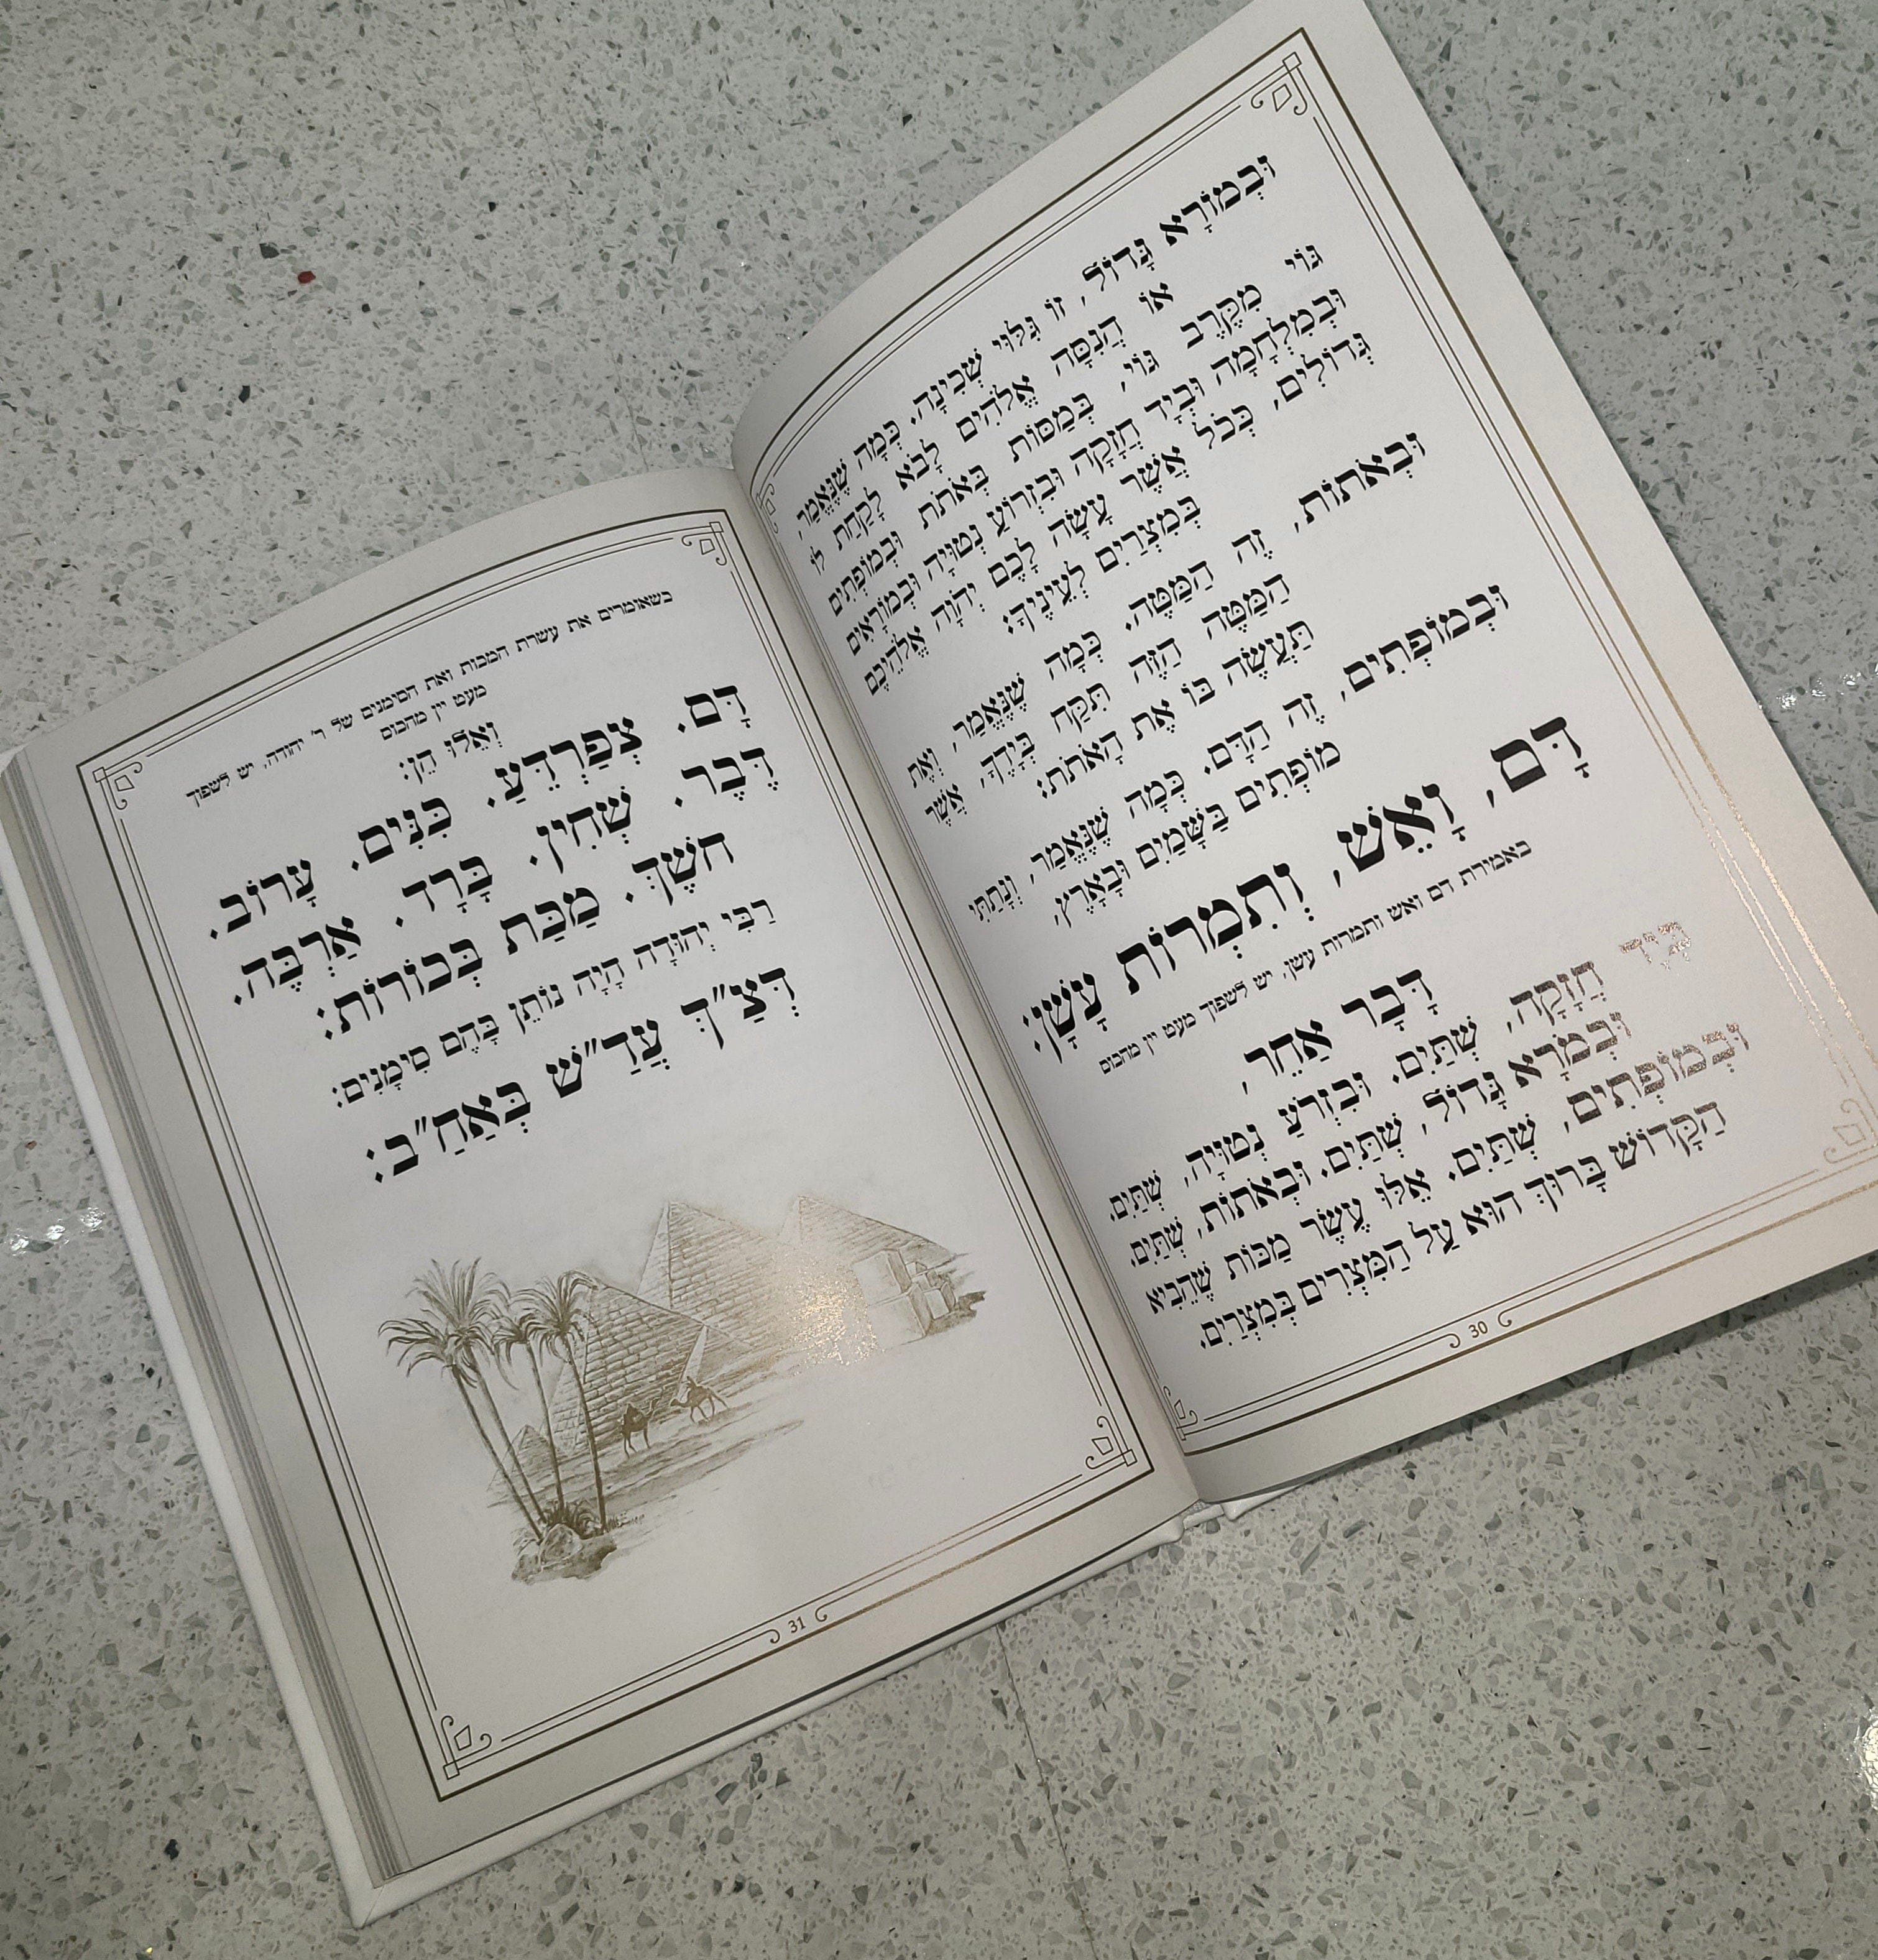 וּבְמוֹרָא גָּדוֹל, זוֹ גִּלּוּי שְׁכִינָה. כְּמָה שֶׁנֶּאֱמַר,
אוֹ הֲנִסָּה אֱלֹהִים לָבֹא לָקַחַת לוֹ
גּוֹי מִקֶּרֶב גּוֹי, בְּמַסּוֹת בְּאֹתֹת וּבְמוֹפְתִים
וּבְמִלְחָמָה וּבְיָד חֲזָקָה וּבִזְרוֹעַ נְטוּיָה וּבְמוֹרָאִים
גְּדוֹלִים, כְּכֹל אֲשֶׁר עָשָׂה לָכֶם יְהֹוָה אֱלֹהֵיכֶם
בְּמִצְרַיִם לְעֵינֶיךָ:
וּבְאֹתוֹת, זֶה הַמַּטֶּה. כְּמָה שֶׁנֶּאֱמַר, וְאֶת
הַמַּטֶּה הַזֶּה תִּקַּח בְּיָדֶךָ, אֲשֶׁר
תַּעֲשֶׂה בּוֹ אֶת הָאֹתֹת:
וּבְמוֹפְתִים, זֶה הַדָּם. כְּמָה שֶׁנֶּאֱמַר, וְנָתַתִּי
מוֹפְתִים בַּשָּׁמַיִם וּבָאָרֶץ,
דָּם, וָאֵשׁ, וְתִמְרוֹת עָשָׁן:
באמירת דם ואש ותמרות עשן, יש לשפוך מעט יין מהכוס
דָּבָר אַחֵר,
בְּיָד חֲזָקָה, שְׁתַּיִם. וּבִזְרֹעַ נְטוּיָה, שְׁתַּיִם.
וּבְמֹרָא גָּדוֹל, שְׁתַּיִם. וּבְאֹתוֹת, שְׁתַּיִם.
וּבְמוֹפְתִים, שְׁתַּיִם. אֵלּוּ עֶשֶׂר מַכּוֹת שֶׁהֵבִיא
הַקָּדוֹשׁ בָּרוּךְ הוּא עַל הַמִּצְרִים בְּמִצְרַיִם.
30
כשאומרים את עשרת המכות ואת הסימנים של ר' יהודה, יש לשפוך
מעט יין מהכוס
וְאֵלּוּ הֵן:
דָּם. צְפַרְדֵּעַ. כִּנִּים. עָרוֹב.
דֶּבֶר. שְׁחִין. בָּרָד. אַרְבֶּה.
חשֶׁךְ. מַכַּת בְּכוֹרוֹת:
רַבִּי יְהוּדָה הָיָה נוֹתֵן בָּהֶם סִימָנִים:
דְּצַ"ךְ עֲדַ"שׁ בְּאַחַ"ב:
31